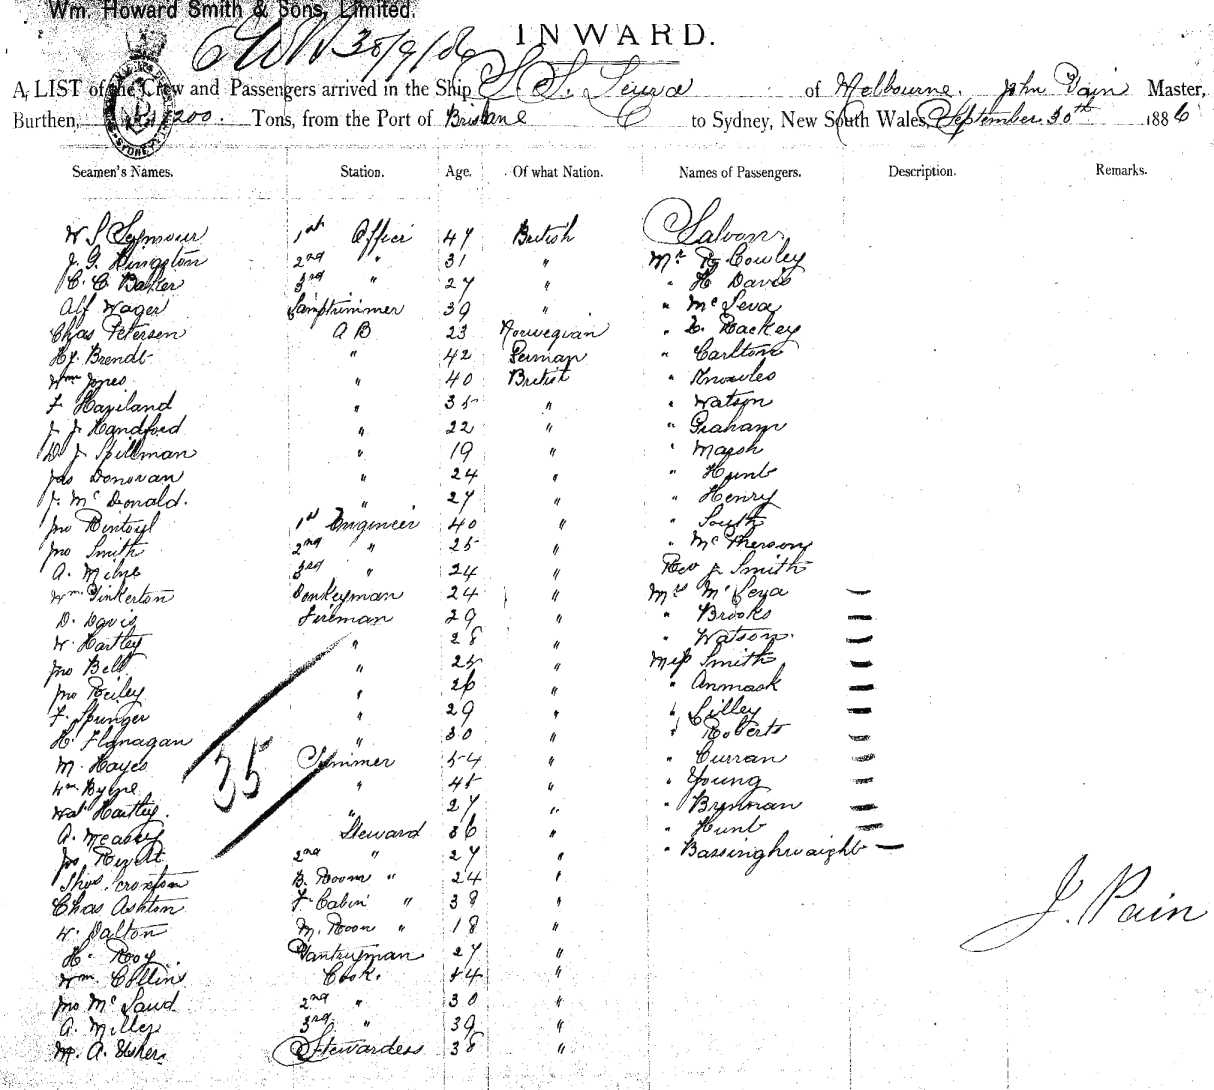 Wm. Howard Smith & Sons, Limited.
INWARD.
30/9/86
A LIST of the Crew and Passengers arrived in the Ship S. S. Leura of Melbourne. John Pain Master,
Burthen, 1200. Tons, from the Port of Brisbane to Sydney, New South Wales, September 30th 1886
Seamen's Names. Station. Age. Of what Nation. Names of Passengers. Description. Remarks.
W S Seymour 1st Officer 47 British Saloon
J. G. Kingston 2nd " 31 " Mr R Cowley
C. C. Baker 3rd " 27 " " H Davis
Alf Wager Lamptrimmer 39 " " McLeva
Chas Petersen A B 23 Norwegian " Z. Rackey
Hy. Brendt " 42 German " Carlton
Wm Jones " 40 British " Knowles
F Haviland " 35 " " Watson
J. J. Handford " 22 " " Graham
D J Spillman " 19 " " Marsh
Jas Donovan " 24 " " Hunt
J. McDonald. " 27 " " Henry
Jno Rintoul 1st Engineer 40 " " South
Jno Smith 2nd " 25 " " McPherson
A. Milne 3rd " 24 " Rev J Smith
Wm Pinkerton Donkeyman 24 " Mrs McLeva —
D. Davis Fireman 29 " " Brooks —
W. Hartley " 28 " " Watson. —
Jno Bell " 25 " Miss Smith —
Jno Reiley " 26 " " Anmask —
F. Springer " 29 " " Lilley —
H. Flanagan " 30 " " Roberts —
M. Hayes Trimmer 54 " " Curran —
Wm Byrne " 45 " " Young —
Wal Hartley. " 27 " " Brennan —
A. Meaney Steward 36 " " Hunt —
Jos 2nd " 27 " " Bassinghwaight —
35
Thos Croxton B. Room " 24 "
Chas Ashton F. Cabin " 38 "
J. Pain
W. Dalton M. Room " 18 "
H. Roy. Pantryman 27 "
Wm. Collins Cook. 44 "
Jno McLaud 2nd " 30 "
A. Miller 3rd " 39 "
M. A. Usher. Stewardess 38 "